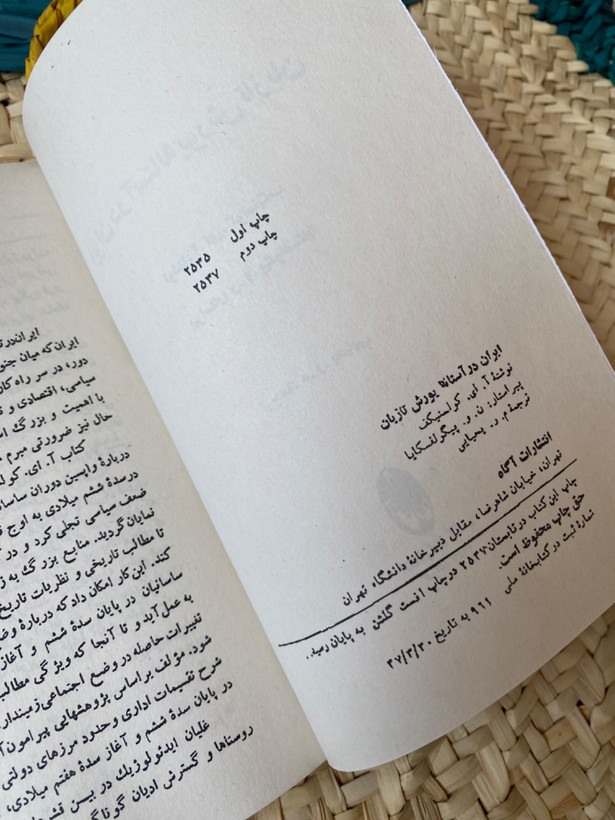 چاپ اول ۲۵۳۵
چاپ دوم ۲۵۳۷
ایران در آستانهٔ یورش تازیان
نوشتهٔ آ. ای. کولسنیکف
پیراستار: ن. و. پیگولفسکایا
ترجمهٔ م. ر. یحیایی
انتشارات آگاه
تهران، خیابان شاهرضا، مقابل دبیرخانهٔ دانشگاه تهران
چاپ این کتاب در تابستان ۲۵۳۷ در چاپ افست گلشن به پایان رسید.
حق چاپ محفوظ است.
شمارهٔ ثبت در کتابخانهٔ ملی ۹۶۱ به تاریخ ۳۷/۳/۲۰
ایران در
ایران که میان
دور، در سر راه
سیاسی، اقتصادی و
با اهمیت و بزرگ
حال نیز ضرورتی مبرم
کتاب آ. ای.
دربارهٔ واپسین دوران
در سدهٔ ششم میلادی به اوج
ضعف سیاسی تجلی کرد و در
نمایان گردید. منابع بزرگ به
تا مطالب تاریخی و نظریات
کند. این کار امکان داد که دربارهٔ
ساسانیان در پایان سدهٔ ششم و آغاز
به عمل آید و تا آنجا که ویژگی
تغییرات حاصله در وضع اجتماعی
شود. مؤلف بر اساس پژوهشهایی پیرامون
شرح تقسیمات اداری و حدود مرزهای دولتی
در پایان سدهٔ ششم و آغاز سدهٔ هفتم میلادی،
غلیان ایدئولوژیك در بین
روستاها و گسترش ادیان